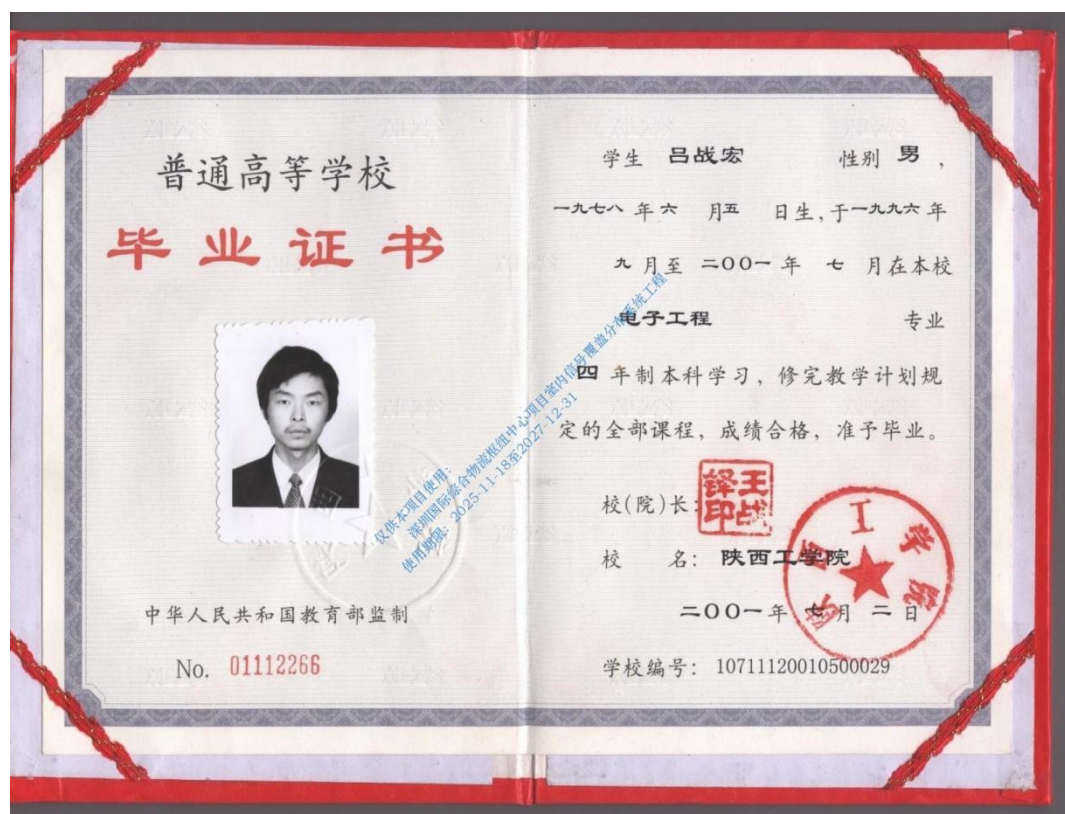 普通高等学校
毕业证书
中华人民共和国教育部监制
No. 01112266
学生 吕战宏 性别 男，
一九七八 年 六 月 五 日生，于 一九九六 年
九 月至 二〇〇一 年 七 月在本校
电子工程 专业
四 年制本科学习，修完教学计划规
定的全部课程，成绩合格，准予毕业。
校(院)长：
王战
铎印
校 名：陕西工学院
陕西工学院
二〇〇一 年 七 月 二 日
学校编号：10711120010500029
仅供本项目使用：
深圳国际综合物流枢纽中心项目室内信号覆盖分布系统工程
使用期限：2025-11-18至2027-12-31